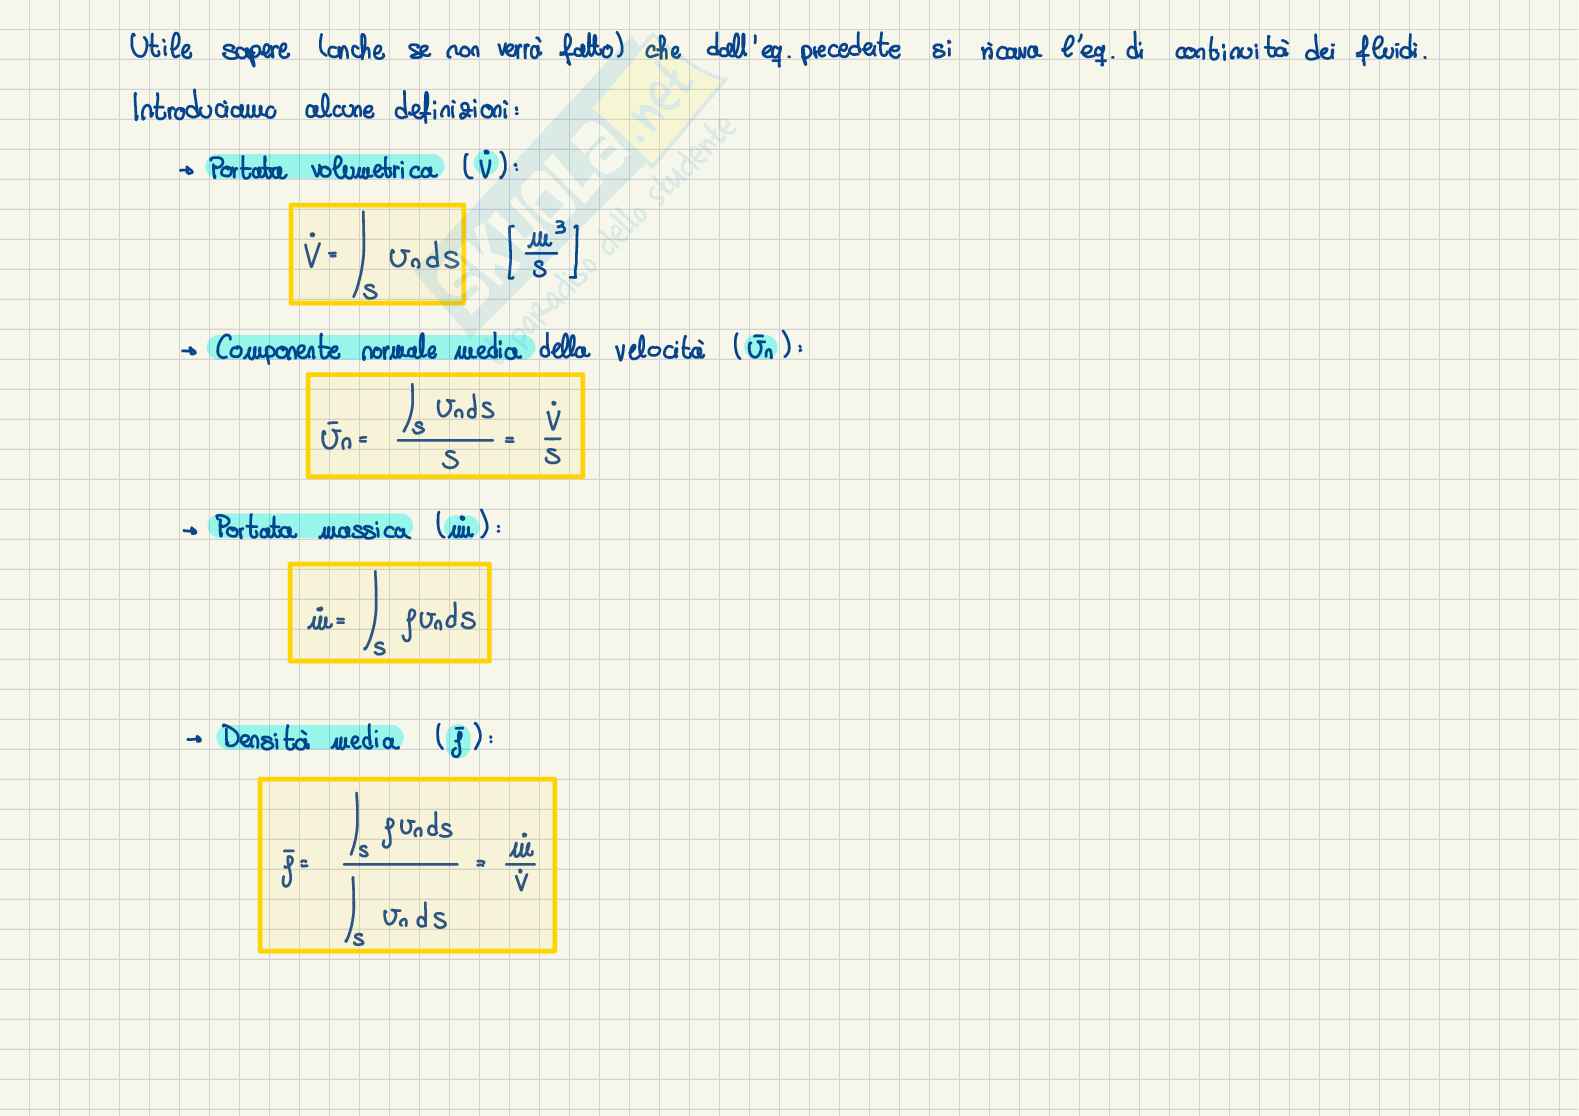 Utile sapere (anche se non verrà fatto) che dall'eq. precedente si ricava l'eq. di continuità dei fluidi.
Introduciamo alcune definizioni:
→ Portata volumetrica (V̇):
V̇ = ∫_S υn dS [m³/s]
→ Componente normale media della velocità (ῡn):
ῡn = ∫_S υn dS / S = V̇ / S
→ Portata massica (ṁ):
ṁ = ∫_S ρ υn dS
→ Densità media (ρ̄):
ρ̄ = ∫_S ρ υn dS / ∫_S υn dS = ṁ / V̇
SKUOLA.net
il paradiso dello studente